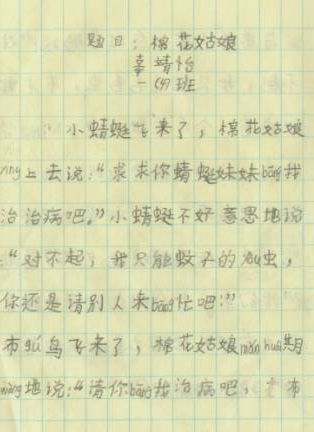 题目：棉花姑娘
辜靖怡
一(4)班
小蜻蜓飞来了，棉花姑娘
yíng上去说：“求求你蜻蜓妹妹bāng我
治治病吧。”小蜻蜓不好意思地说
：“对不起，我只能蚊子的幼虫，
你还是请别人来bāng忙吧！”
布gǔ鸟飞来了，棉花姑娘mǎn huái期
wàng地说：“请你bāng我治病吧，布